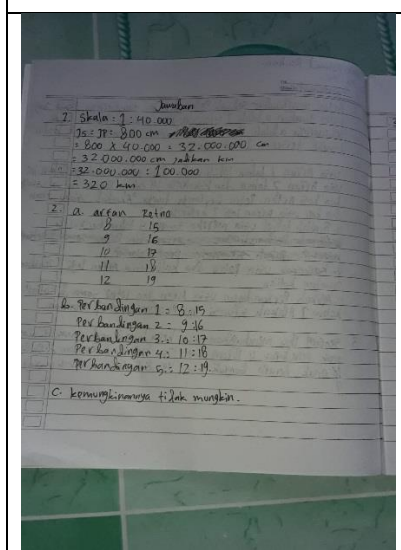 Jawaban
1. Skala : 1 : 40.000
Js = JP : 800 cm
= 800 X 40.000 = 32.000.000 cm
= 32.000.000 cm jadikan km
= 32.000.000 : 100.000
= 320 km
2. a. arfan Retno
8 15
9 16
10 17
11 18
12 19
b. Perbandingan 1 = 8:15
Perbandingan 2 = 9:16
Perbandingan 3 = 10:17
Perbandingan 4 = 11:18
Perbandingan 5 = 12:19
C. kemungkinannya tidak mungkin.